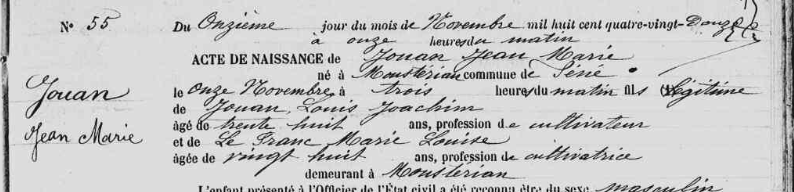 N° 55
Du Onzième jour du mois de Novembre mil huit cent quatre-vingt-Douze
à onze heures du matin
ACTE DE NAISSANCE de Jouan Jean Marie
né à Mousterian commune de Séné
le onze Novembre, à trois heures du matin fils légitime
de Jouan, Louis Joachim
âgé de trente huit ans, profession de cultivateur
et de Le Franc Marie Louise
âgée de vingt huit ans, profession de cultivatrice
demeurant à Mousterian
L'enfant présenté à l'Officier de l'État civil a été reconnu être du sexe masculin
Jouan
Jean Marie